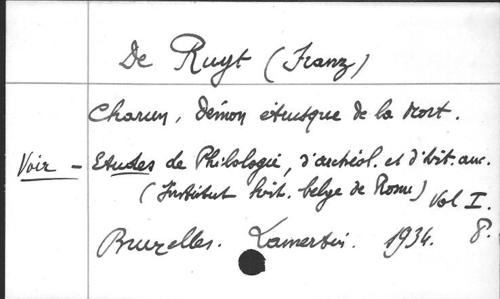 De Ruyt (Franz)
Charun, démon étrusque de la Mort.
Voir - Etudes de Philologie, d'archéol. et d'hist. anc.
(Institut hist. belge de Rome) Vol I.
Bruxelles. Lamertin. 1934. 8°.